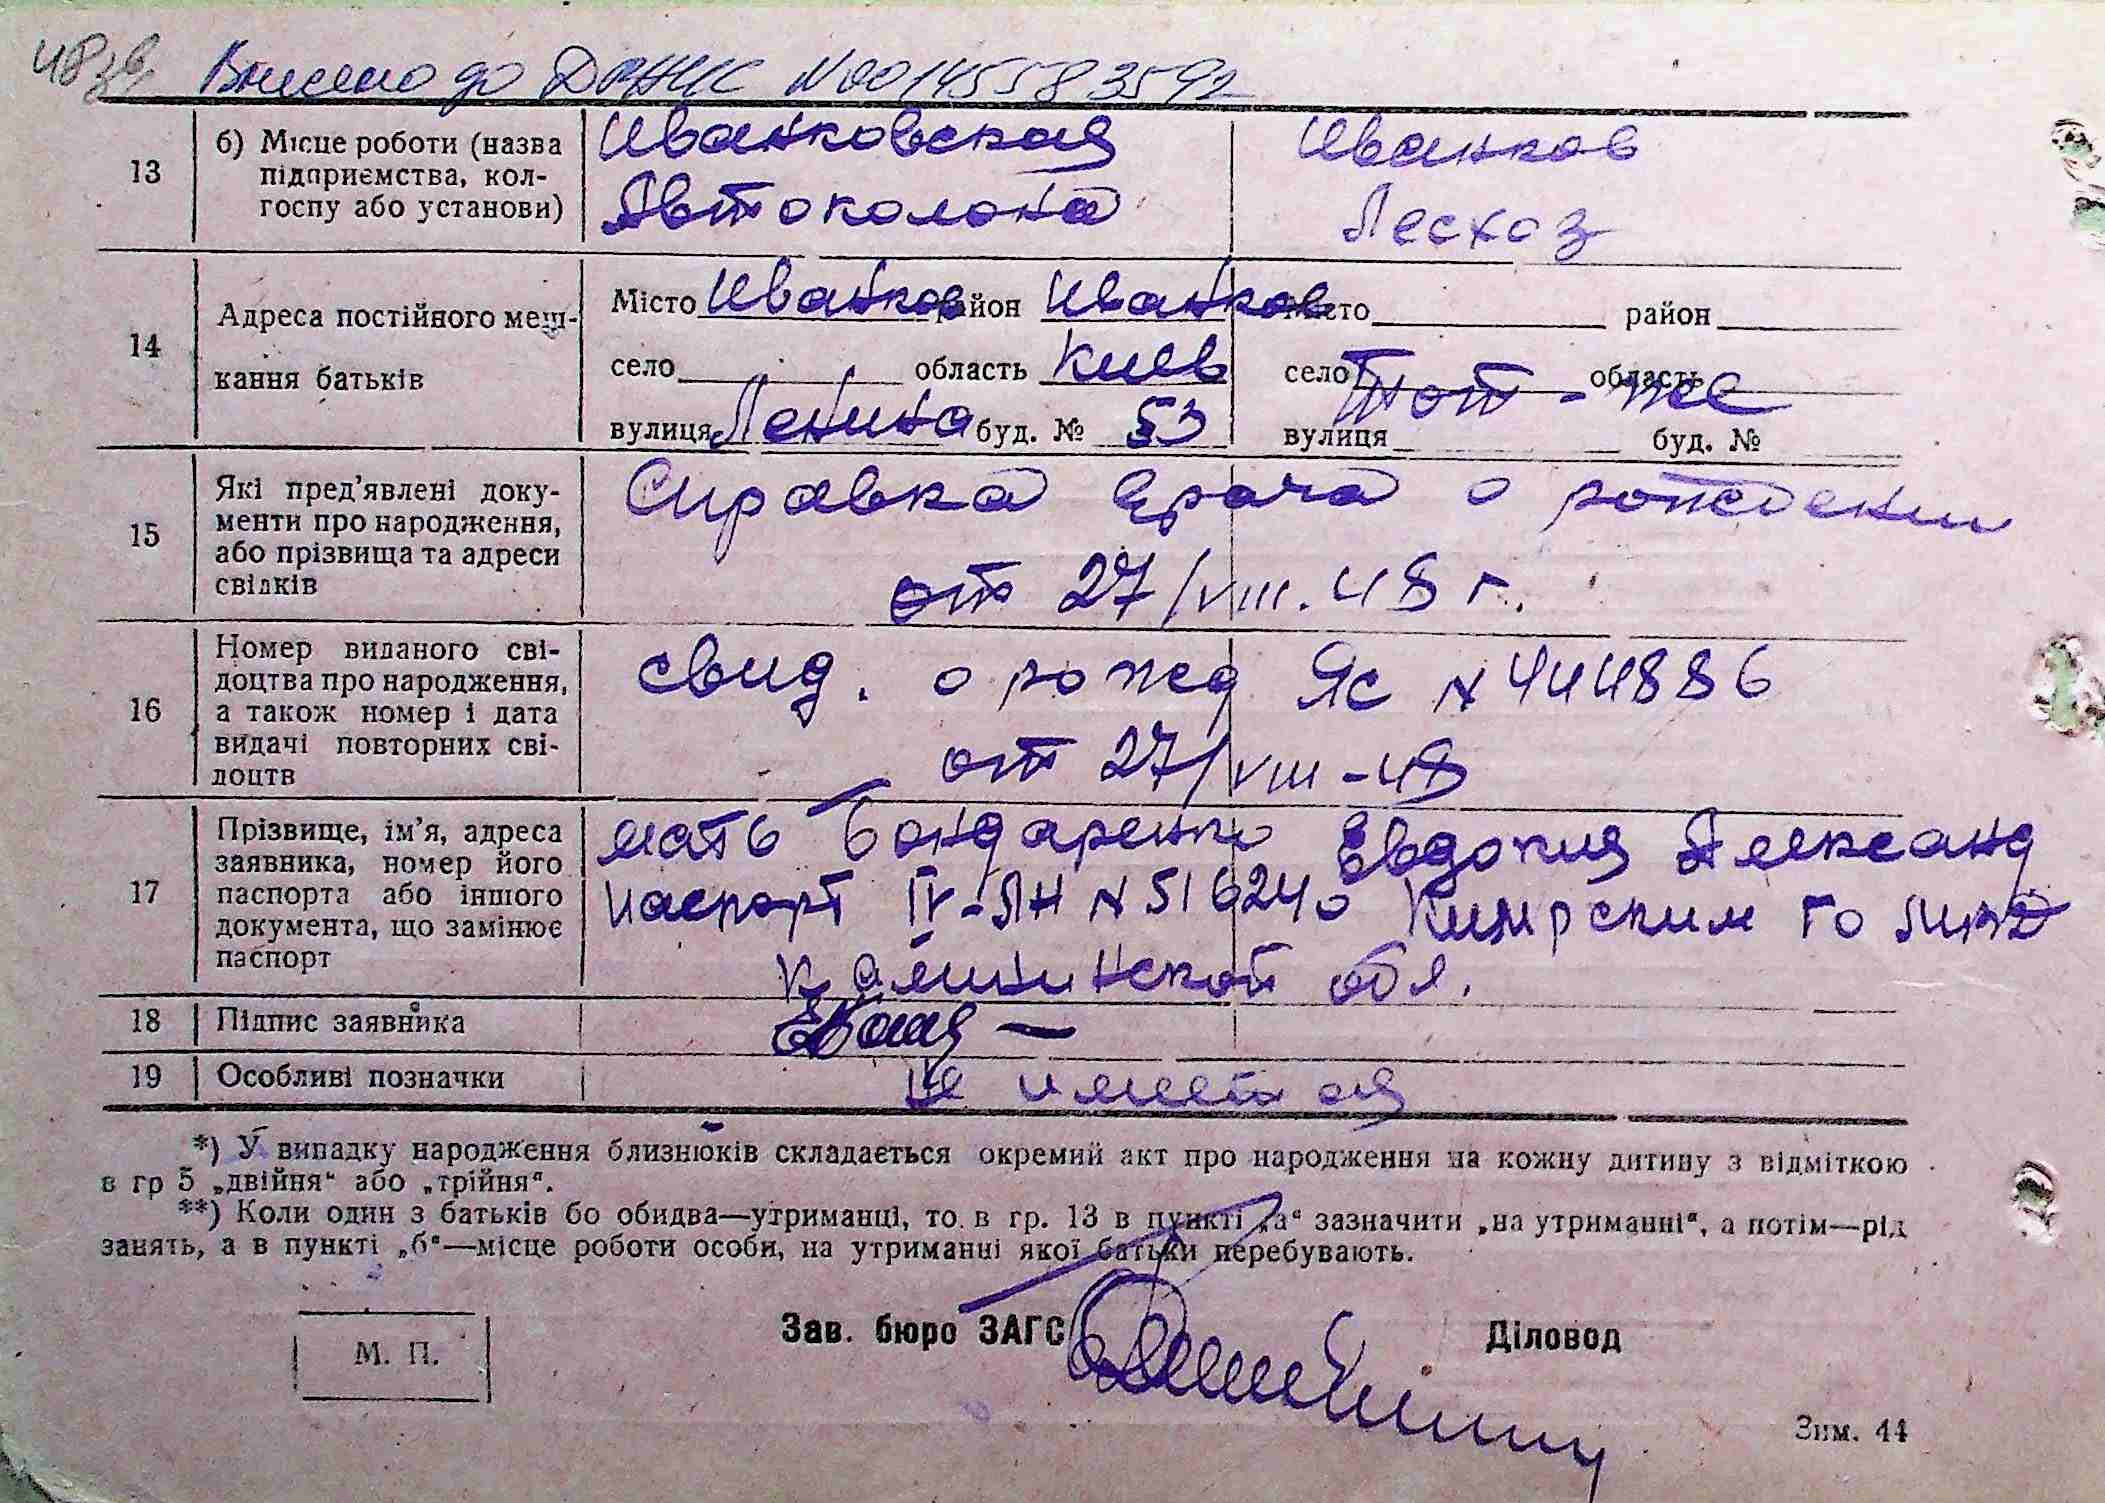 48 зв. Внесено до ДРАЦС №00145583592
13 б) Місце роботи (назва підприємства, колгоспу або установи)
Иванковская Иванков
Автоколона Лесхоз
14 Адреса постійного мешкання батьків
Місто Иванков район Иванков Місто район
село область Киев село Тот-же область
вулиця Ленина буд. № 53 вулиця буд. №
15 Які пред'явлені документи про народження, або прізвища та адреси свідків
Справка врача о рождении
от 27/VIII.48 г.
16 Номер виданого свідоцтва про народження, а також номер і дата видачі повторних свідоцтв
свид. о рожд ЯС N 444886
от 27/VIII-48
17 Прізвище, ім'я, адреса заявника, номер його паспорта або іншого документа, що замінює паспорт
мать Бондаренко Евдокия Александ
Паспорт IV-ЛН N 516240 Кимрским ГО
Калининской обл.
18 Підпис заявника
19 Особливі позначки
Не имеется
*) У випадку народження близнюків складається окремий акт про народження на кожну дитину з відміткою
в гр 5 „двійня“ або „трійня“.
**) Коли один з батьків бо обидва—утриманці, то в гр. 13 в пункті „а“ зазначити „на утриманні“, а потім—рід
занять, а в пункті „б“—місце роботи особи, на утриманні якої батьки перебувають.
М. П. Зав. бюро ЗАГС Діловод
Зим. 44